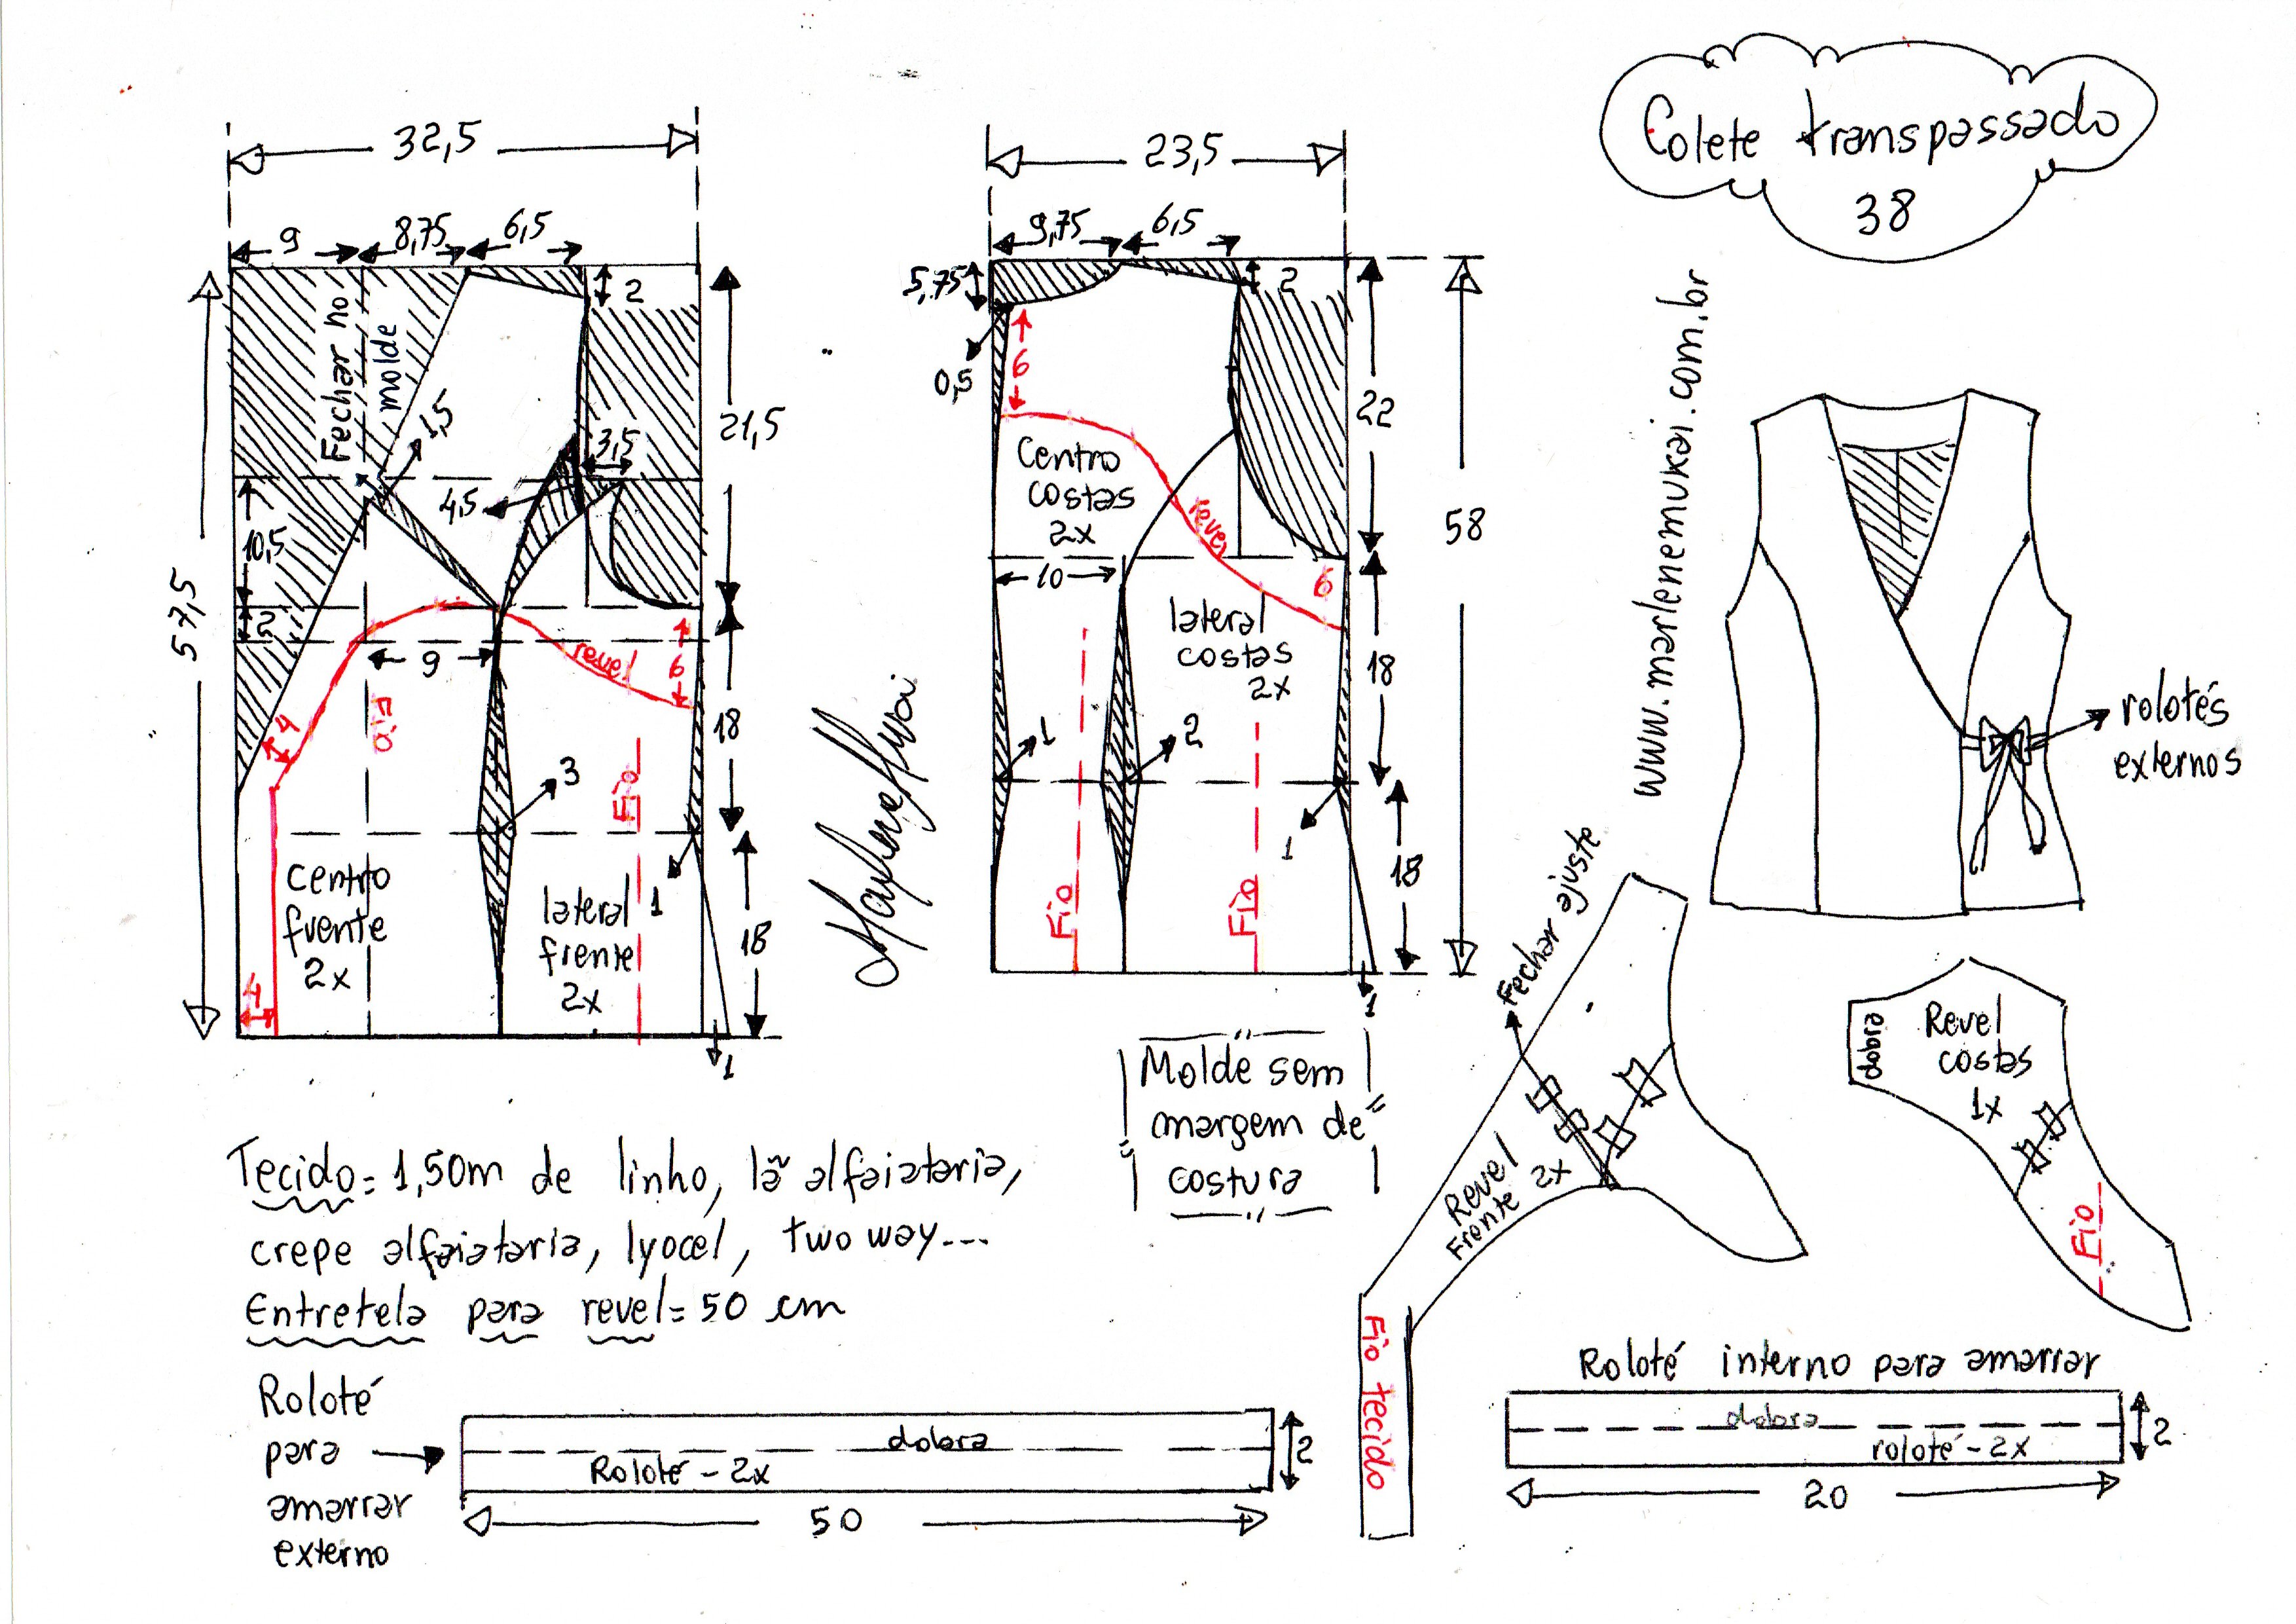 Colete transpassado
38
www.marlenemukai.com.br
32,5
9
8,75
6,5
2
Fechar no
molde
1,5
3,5
4,5
21,5
10,5
2
57,5
9
revel
6
4
Fio
18
3
Fio
1
centro
frente
2x
lateral
frente
2x
18
4
1
23,5
9,75
6,5
5,75
2
0,5
6
22
Centro
costas
2x
revel
58
10
6
lateral
costas
2x
18
1
2
1
Fio
Fio
18
1
Marlene Mukai
rolotés
externos
Fechar ajuste
Revel
Frente 2x
Fio tecido
dobra
Revel
costas
1x
Fio
Molde sem
margem de
costura
Tecido = 1,50m de linho, lã alfaiataria,
crepe alfaiataria, lyocel, two way...
Entretela para revel = 50 cm
Roloté
para
amarrar
externo
dobra
Roloté - 2x
2
50
Roloté interno para amarrar
dobra
roloté - 2x
2
20